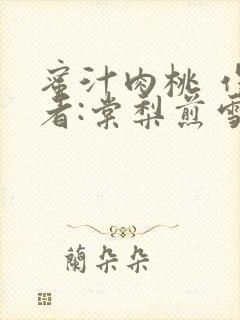 蜜汁肉桃 作
者:棠梨煎雪
蘭朵朵